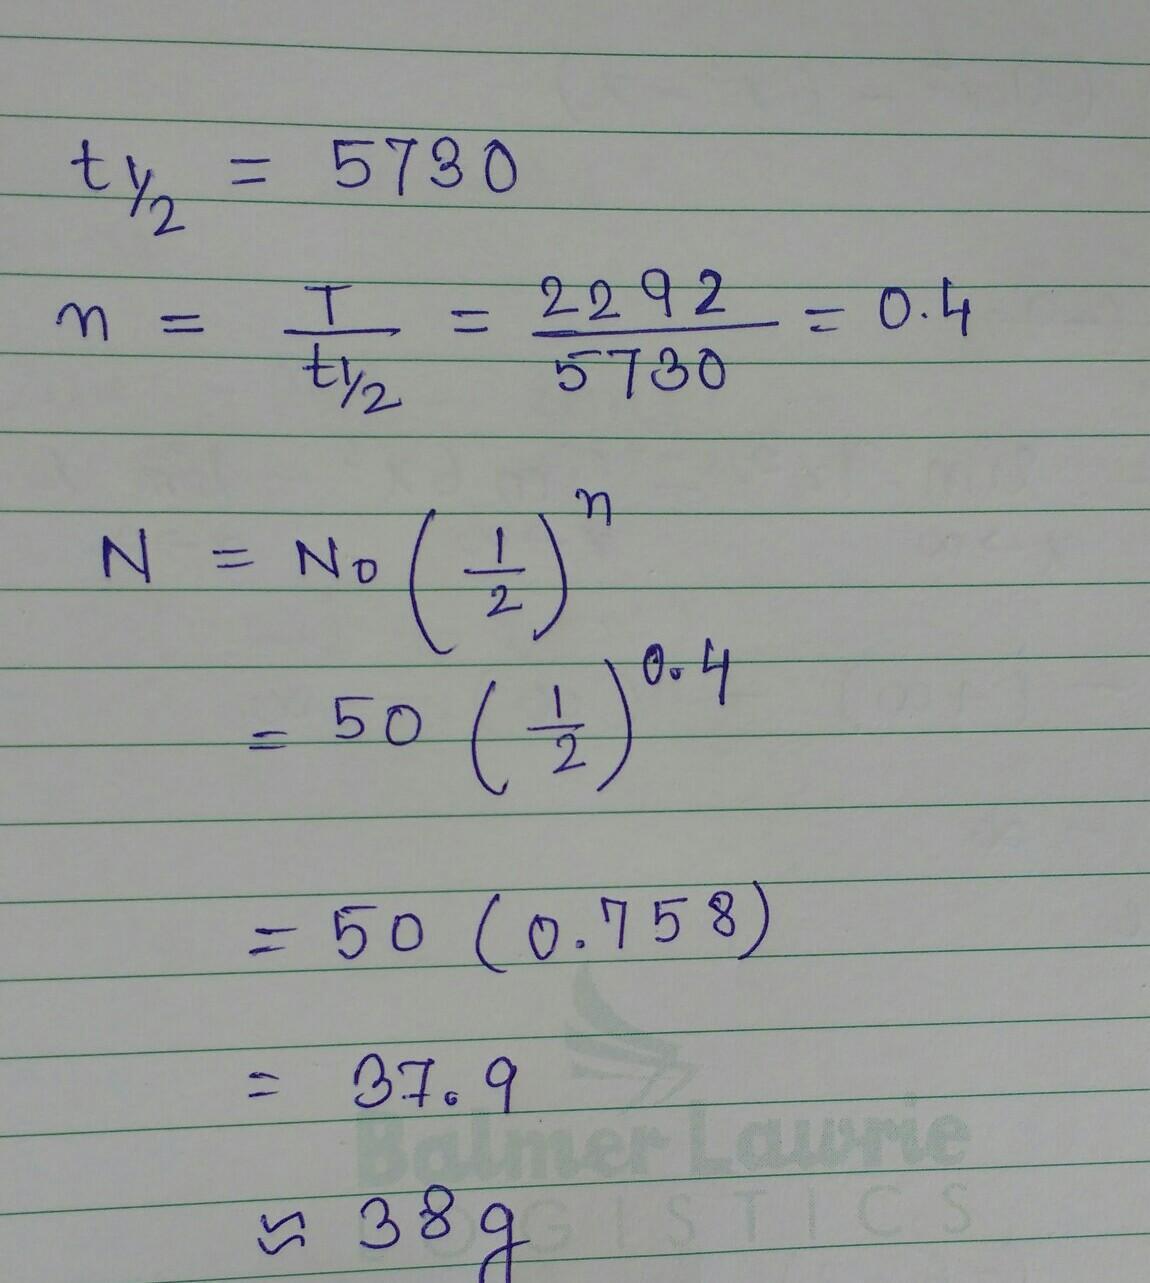 t½ = 5730
n = T/t½ = 2292/5730 = 0.4
N = No (1/2)^n
= 50 (1/2)^0.4
= 50 (0.758)
= 37.9
Balmer Lawrie
≈ 38g
LOGISTICS